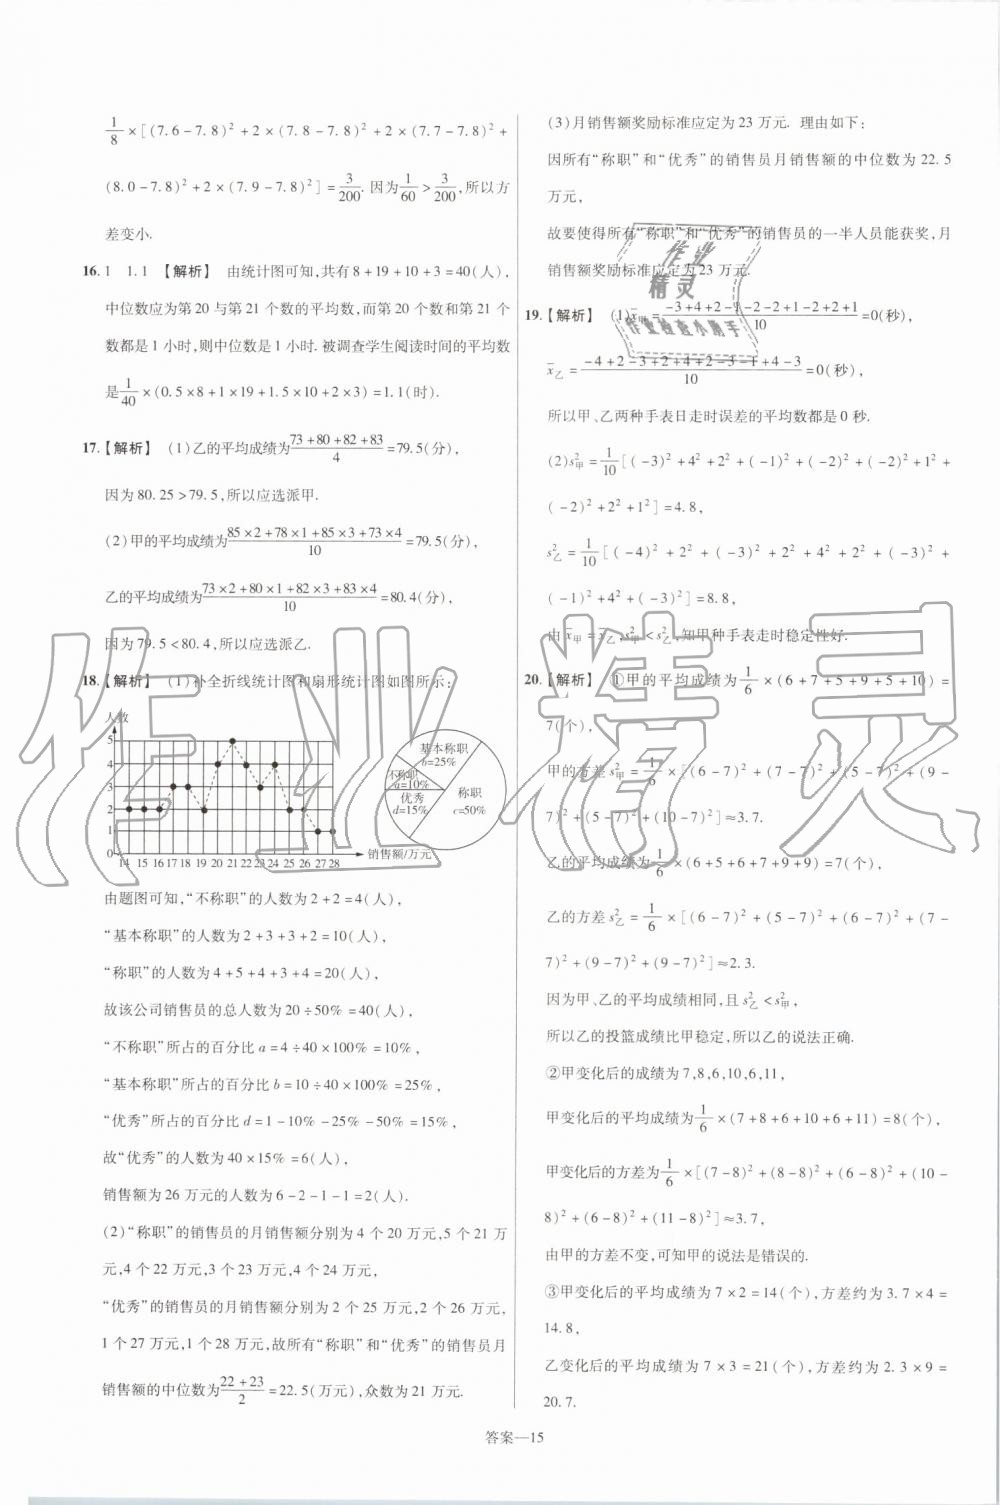 1/8×[(7.6-7.8)²+2×(7.8-7.8)²+2×(7.7-7.8)²+
(8.0-7.8)²+2×(7.9-7.8)²]=3/200. 因为1/60>3/200,所以方
差变小.
16. 1  1.1 【解析】 由统计图可知,共有8+19+10+3=40(人),
中位数应为第20与第21个数的平均数,而第20个数和第21个
数都是1小时,则中位数是1小时. 被调查学生阅读时间的平均数
是1/40×(0.5×8+1×19+1.5×10+2×3)=1.1(时).
17. 【解析】 (1)乙的平均成绩为(73+80+82+83)/4=79.5(分),
因为80.25>79.5,所以应选派甲.
(2)甲的平均成绩为(85×2+78×1+85×3+73×4)/10=79.5(分),
乙的平均成绩为(73×2+80×1+82×3+83×4)/10=80.4(分),
因为79.5<80.4,所以应选派乙.
18. 【解析】 (1)补全折线统计图和扇形统计图如图所示:
人数
5
4
3
2
1
0
14 15 16 17 18 19 20 21 22 23 24 25 26 27 28 销售额/万元
基本称职
b=25%
不称职
a=10%
优秀
d=15%
称职
c=50%
由题图可知,“不称职”的人数为2+2=4(人),
“基本称职”的人数为2+3+3+2=10(人),
“称职”的人数为4+5+4+3+4=20(人),
故该公司销售员的总人数为20÷50%=40(人),
“不称职”所占的百分比a=4÷40×100%=10%,
“基本称职”所占的百分比b=10÷40×100%=25%,
“优秀”所占的百分比d=1-10%-25%-50%=15%,
故“优秀”的人数为40×15%=6(人),
销售额为26万元的人数为6-2-1-1=2(人).
(2)“称职”的销售员的月销售额分别为4个20万元,5个21万
元,4个22万元,3个23万元,4个24万元,
“优秀”的销售员的月销售额分别为2个25万元,2个26万元,
1个27万元,1个28万元,故所有“称职”和“优秀”的销售员月
销售额的中位数为(22+23)/2=22.5(万元),众数为21万元.
(3)月销售额奖励标准应定为23万元. 理由如下:
因所有“称职”和“优秀”的销售员月销售额的中位数为22.5
万元,
故要使得所有“称职”和“优秀”的销售员的一半人员能获奖,月
销售额奖励标准应定为23万元.
19. 【解析】 (1)x̄甲=(-3+4+2-1-2-2+1-2+2+1)/10=0(秒),
x̄乙=(-4+2-3+2+4+2-3-1+4-3)/10=0(秒),
所以甲、乙两种手表日走时误差的平均数都是0秒.
(2)s²甲=1/10[(-3)²+4²+2²+(-1)²+(-2)²+(-2)²+1²+
(-2)²+2²+1²]=4.8,
s²乙=1/10[(-4)²+2²+(-3)²+2²+4²+2²+(-3)²+
(-1)²+4²+(-3)²]=8.8,
由x̄甲=x̄乙,s²甲<s²乙,知甲种手表走时稳定性好.
20. 【解析】 ①甲的平均成绩为1/6×(6+7+5+9+5+10)=
7(个),
甲的方差s²甲=1/6×[(6-7)²+(7-7)²+(5-7)²+(9-
7)²+(5-7)²+(10-7)²]≈3.7.
乙的平均成绩为1/6×(6+5+6+7+9+9)=7(个),
乙的方差s²乙=1/6×[(6-7)²+(5-7)²+(6-7)²+(7-
7)²+(9-7)²+(9-7)²]≈2.3.
因为甲、乙的平均成绩相同,且s²乙<s²甲,
所以乙的投篮成绩比甲稳定,所以乙的说法正确.
②甲变化后的成绩为7,8,6,10,6,11,
甲变化后的平均成绩为1/6×(7+8+6+10+6+11)=8(个),
甲变化后的方差为1/6×[(7-8)²+(8-8)²+(6-8)²+(10-
8)²+(6-8)²+(11-8)²]≈3.7,
由甲的方差不变,可知甲的说法是错误的.
③甲变化后的平均成绩为7×2=14(个),方差约为3.7×4=
14.8,
乙变化后的平均成绩为7×3=21(个),方差约为2.3×9=
20.7.
答案—15
作业精灵
作业
精灵
作业检查小助手